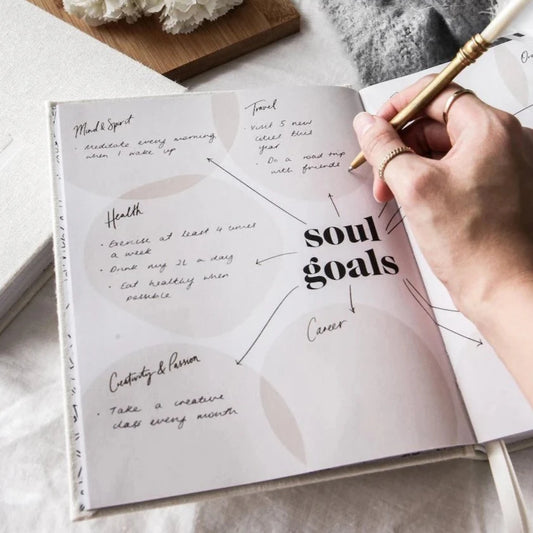 Mind & Spirit
• Meditate every morning
when I wake up
Travel
Visit 5 new
cities this
year
• Do a road trip
with friends
Health
• Exercise at least 4 times
a week
• Drink 2L a day
• Eat healthy when
possible
soul
goals
Career
Creativity & Passion
• Take a creative
class every month